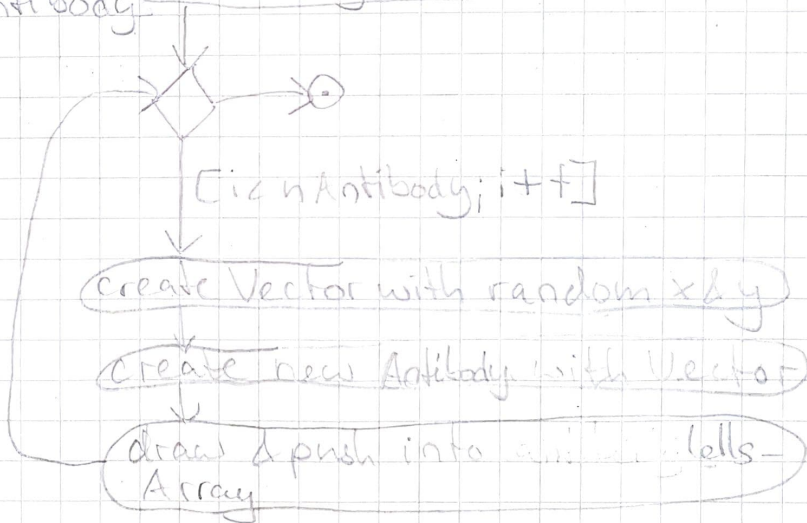 [i< nAntibody; i++]
create Vector with random x & y
create new Antibody with Vector
draw & push into
Array